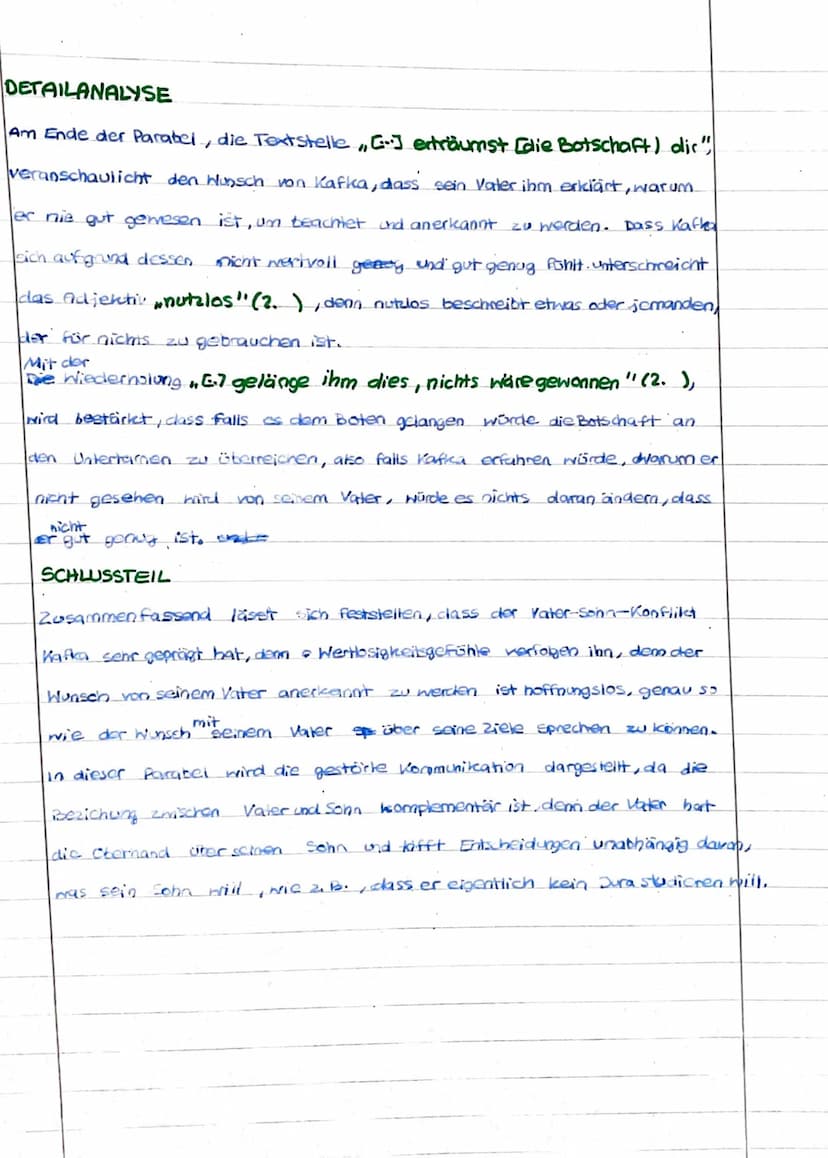 DETAILANALYSE
Am Ende der Parabel, die Textstelle „[...] erträumst [die Botschaft) dir",
veranschaulicht den Wunsch von Kafka, dass sein Vater ihm erklärt, warum
er nie gut gewesen ist, um beachtet und anerkannt zu werden. Dass Kafka
sich aufgrund dessen nicht wertvoll genug und gut genug fühlt. unterschreicht
das Adjektiv „nutzlos" (Z. ), denn nutzlos beschreibt etwas oder jemanden,
der für nichts zu gebrauchen ist.
Mit der
Die Wiederholung „[..] gelänge ihm dies, nichts wäre gewonnen" (Z. ),
wird bestärkt, dass falls es dem Boten gelangen würde die Botschaft an
den Untertanen zu überreichen, also falls Kafka erfahren würde, warum er
nicht gesehen wird von seinem Vater, würde es nichts daran ändern, dass
nicht
er gut genug ist.
SCHLUSSTEIL
Zusammenfassend lässt sich feststellen, dass der Vater-Sohn-Konflikt
Kafka sehr geprägt hat, denn Wertlosigkeitsgefühle verfolgen ihn, denn der
Wunsch von seinem Vater anerkannt zu werden ist hoffnungslos, genau so
wie der Wunsch mit seinem Vater über seine Ziele sprechen zu können.
In dieser Parabel wird die gestörte Kommunikation dargestellt, da die
Beziehung zwischen Vater und Sohn komplementär ist, denn der Vater hat
die Oberhand über seinen Sohn und trifft Entscheidungen unabhängig davon,
was sein Sohn will, wie z.B., dass er eigentlich kein Jura studieren will.